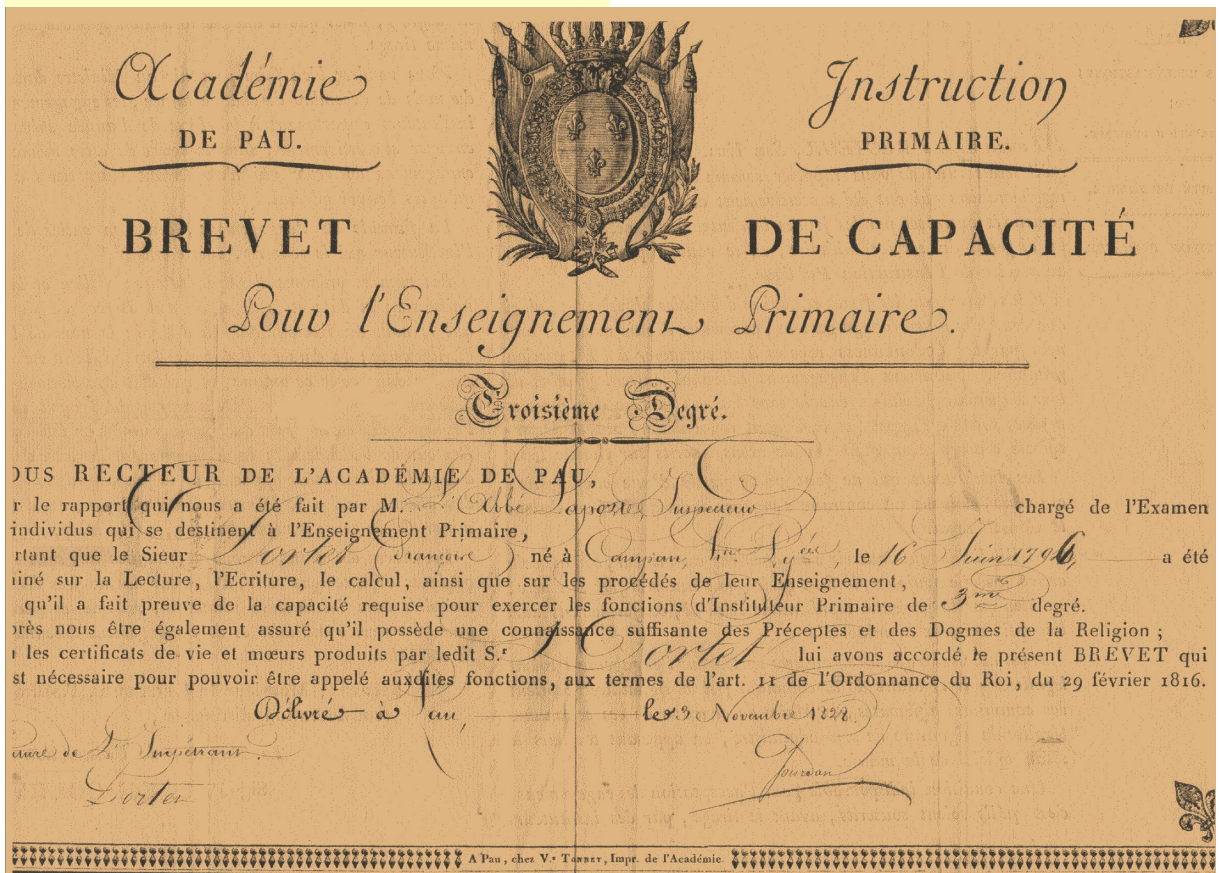 Académie
DE PAU.
Instruction
PRIMAIRE.
BREVET DE CAPACITÉ
Pour l'Enseignement Primaire.
Troisième Degré.
OUS RECTEUR DE L'ACADÉMIE DE PAU,
r le rapport qui nous a été fait par M. L'Abbé Laporte, Inspecteur chargé de l'Examen
individus qui se destinent à l'Enseignement Primaire,
rtant que le Sieur (françois) né à Campan, le 16 Juin 1796, a été
iné sur la Lecture, l'Ecriture, le calcul, ainsi que sur les procédés de leur Enseignement,
qu'il a fait preuve de la capacité requise pour exercer les fonctions d'Instituteur Primaire de 3me degré.
près nous être également assuré qu'il possède une connaissance suffisante des Préceptes et des Dogmes de la Religion ;
les certificats de vie et mœurs produits par ledit S.r lui avons accordé le présent BREVET qui
st nécessaire pour pouvoir être appelé auxdites fonctions, aux termes de l'art. 11 de l'Ordonnance du Roi, du 29 février 1816.
Délivré à Pau, le 3 Novembre 1828
ature de L' Impétrant.
Jourdan
A Pau, chez V.e TONNET, Impr. de l'Académie.